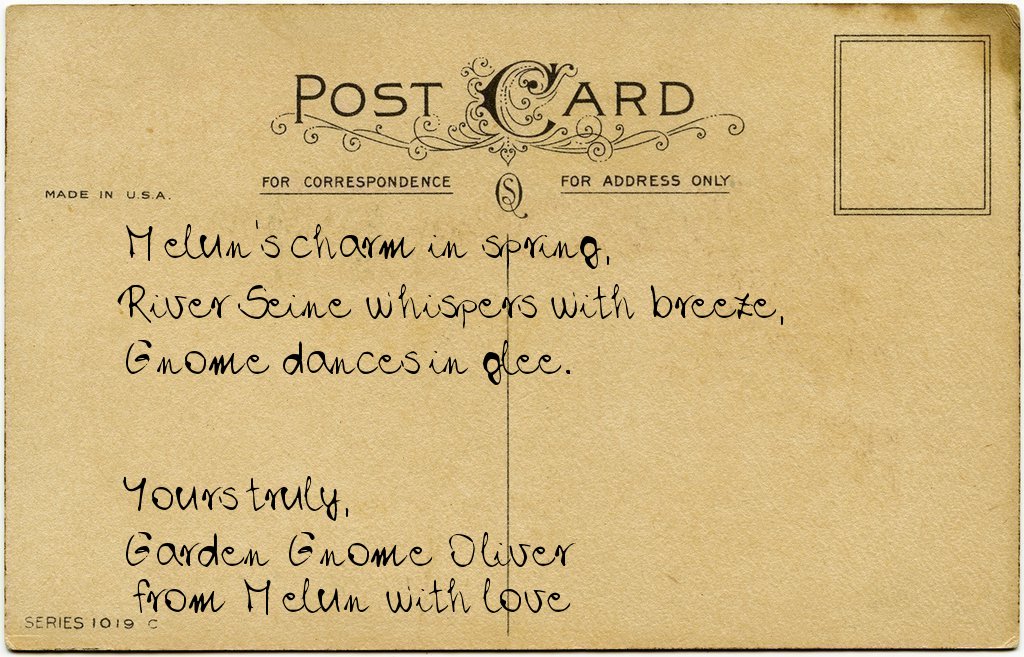 POST CARD
FOR CORRESPONDENCE
FOR ADDRESS ONLY
MADE IN U.S.A.
Melun's charm in spring,
River Seine whispers with breeze,
Gnome dances in glee.
Yours truly,
Garden Gnome Oliver
from Melun with love
SERIES 1019 C